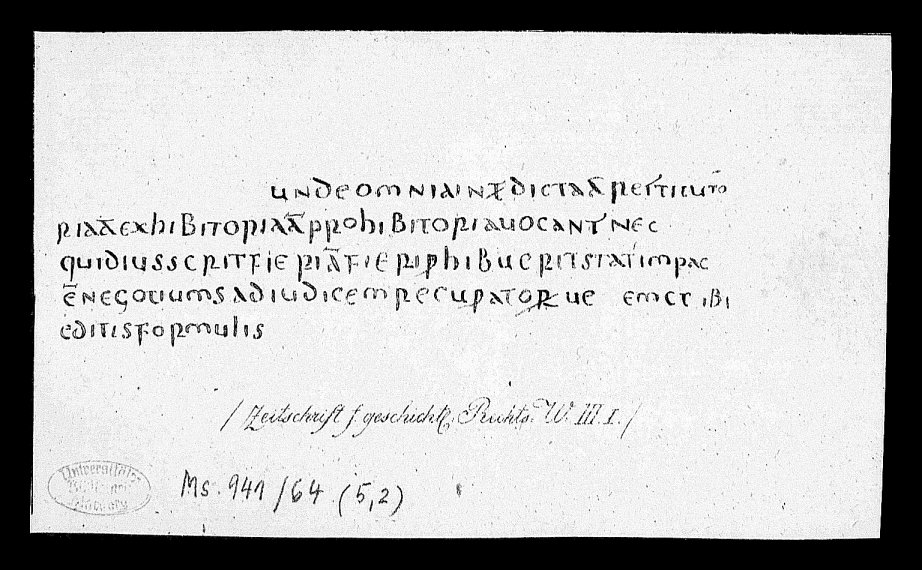 undeomniaintdictaāreſtituto
riaāexhibitoriaāprohibitoriauocantnec
quidiusscritfieriāfieriphibueritstatimpac
ēnegotiumsadiudicemrecuperatorue emctibi
editisformulis
/ Zeitschrift f. geschichtl. Rechts. W. III. I. /
Universitäts
Ms. 941/64 (5,2)